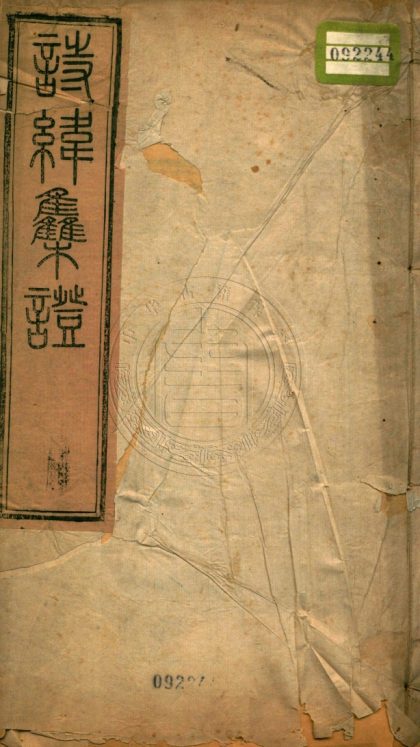 詩緯集證
092244
0922